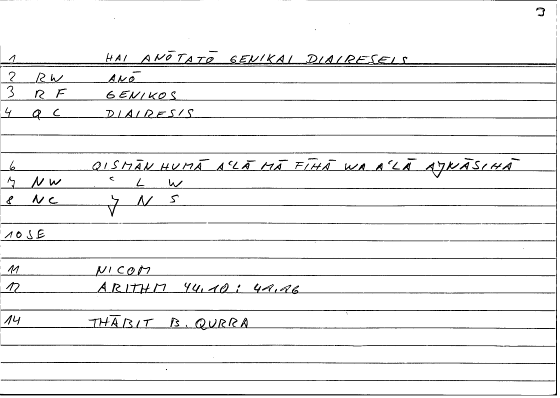 3
1 HAI ANŌTATŌ GENIKAI DIAIRESEIS
2 RW ANŌ
3 RF GENIKOS
4 QC DIAIRESIS
6 QISMĀN HUMĀ AʿLĀ MĀ FĪHĀ WA AʿLĀ AǧNĀSIHĀ
7 NW ʿ L W
8 NC ǧ N S
10 SE
11 NICOM
12 ARITHM 44.10 : 41.16
14 THĀBIT B. QURRA